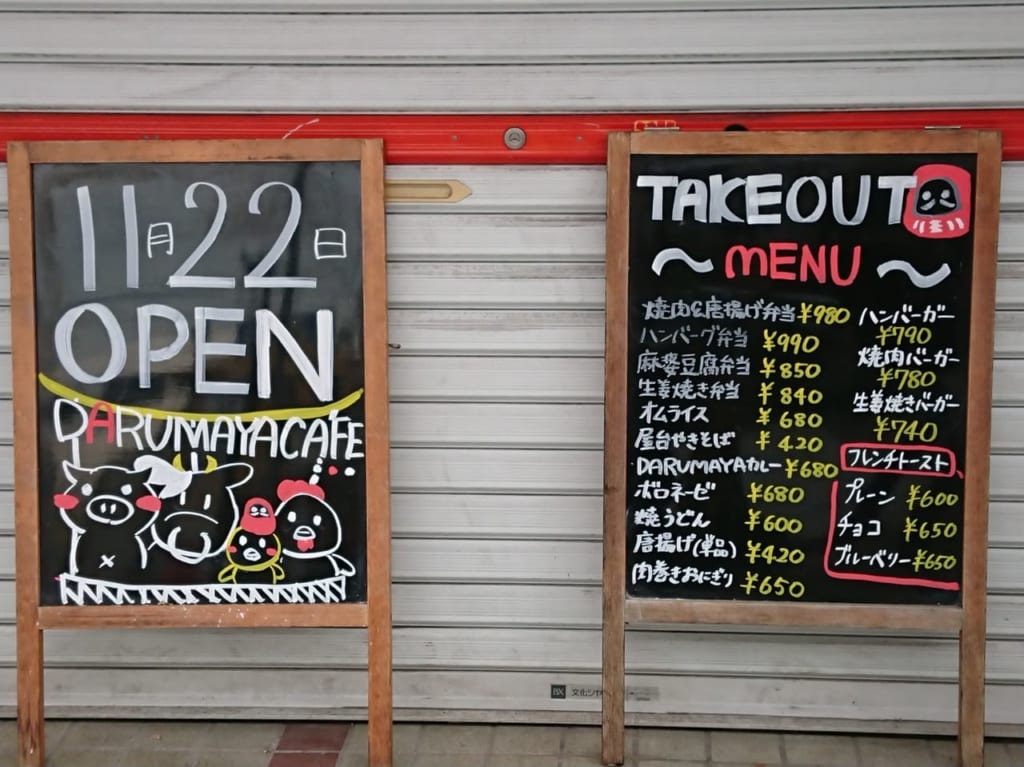 11月22日
OPEN
DARUMAYACAFE
TAKEOUT
～MENU～
焼肉&唐揚げ弁当 ¥980
ハンバーグ弁当 ¥990
麻婆豆腐弁当 ¥850
生姜焼き弁当 ¥840
オムライス ¥680
屋台やきそば ¥420
DARUMAYAカレー ¥680
ボロネーゼ ¥680
焼うどん ¥600
唐揚げ(単品) ¥420
肉巻きおにぎり ¥650
ハンバーガー
¥790
焼肉バーガー
¥780
生姜焼きバーガー
¥740
フレンチトースト
プレーン ¥600
チョコ ¥650
ブルーベリー ¥650
BX 文化シヤ